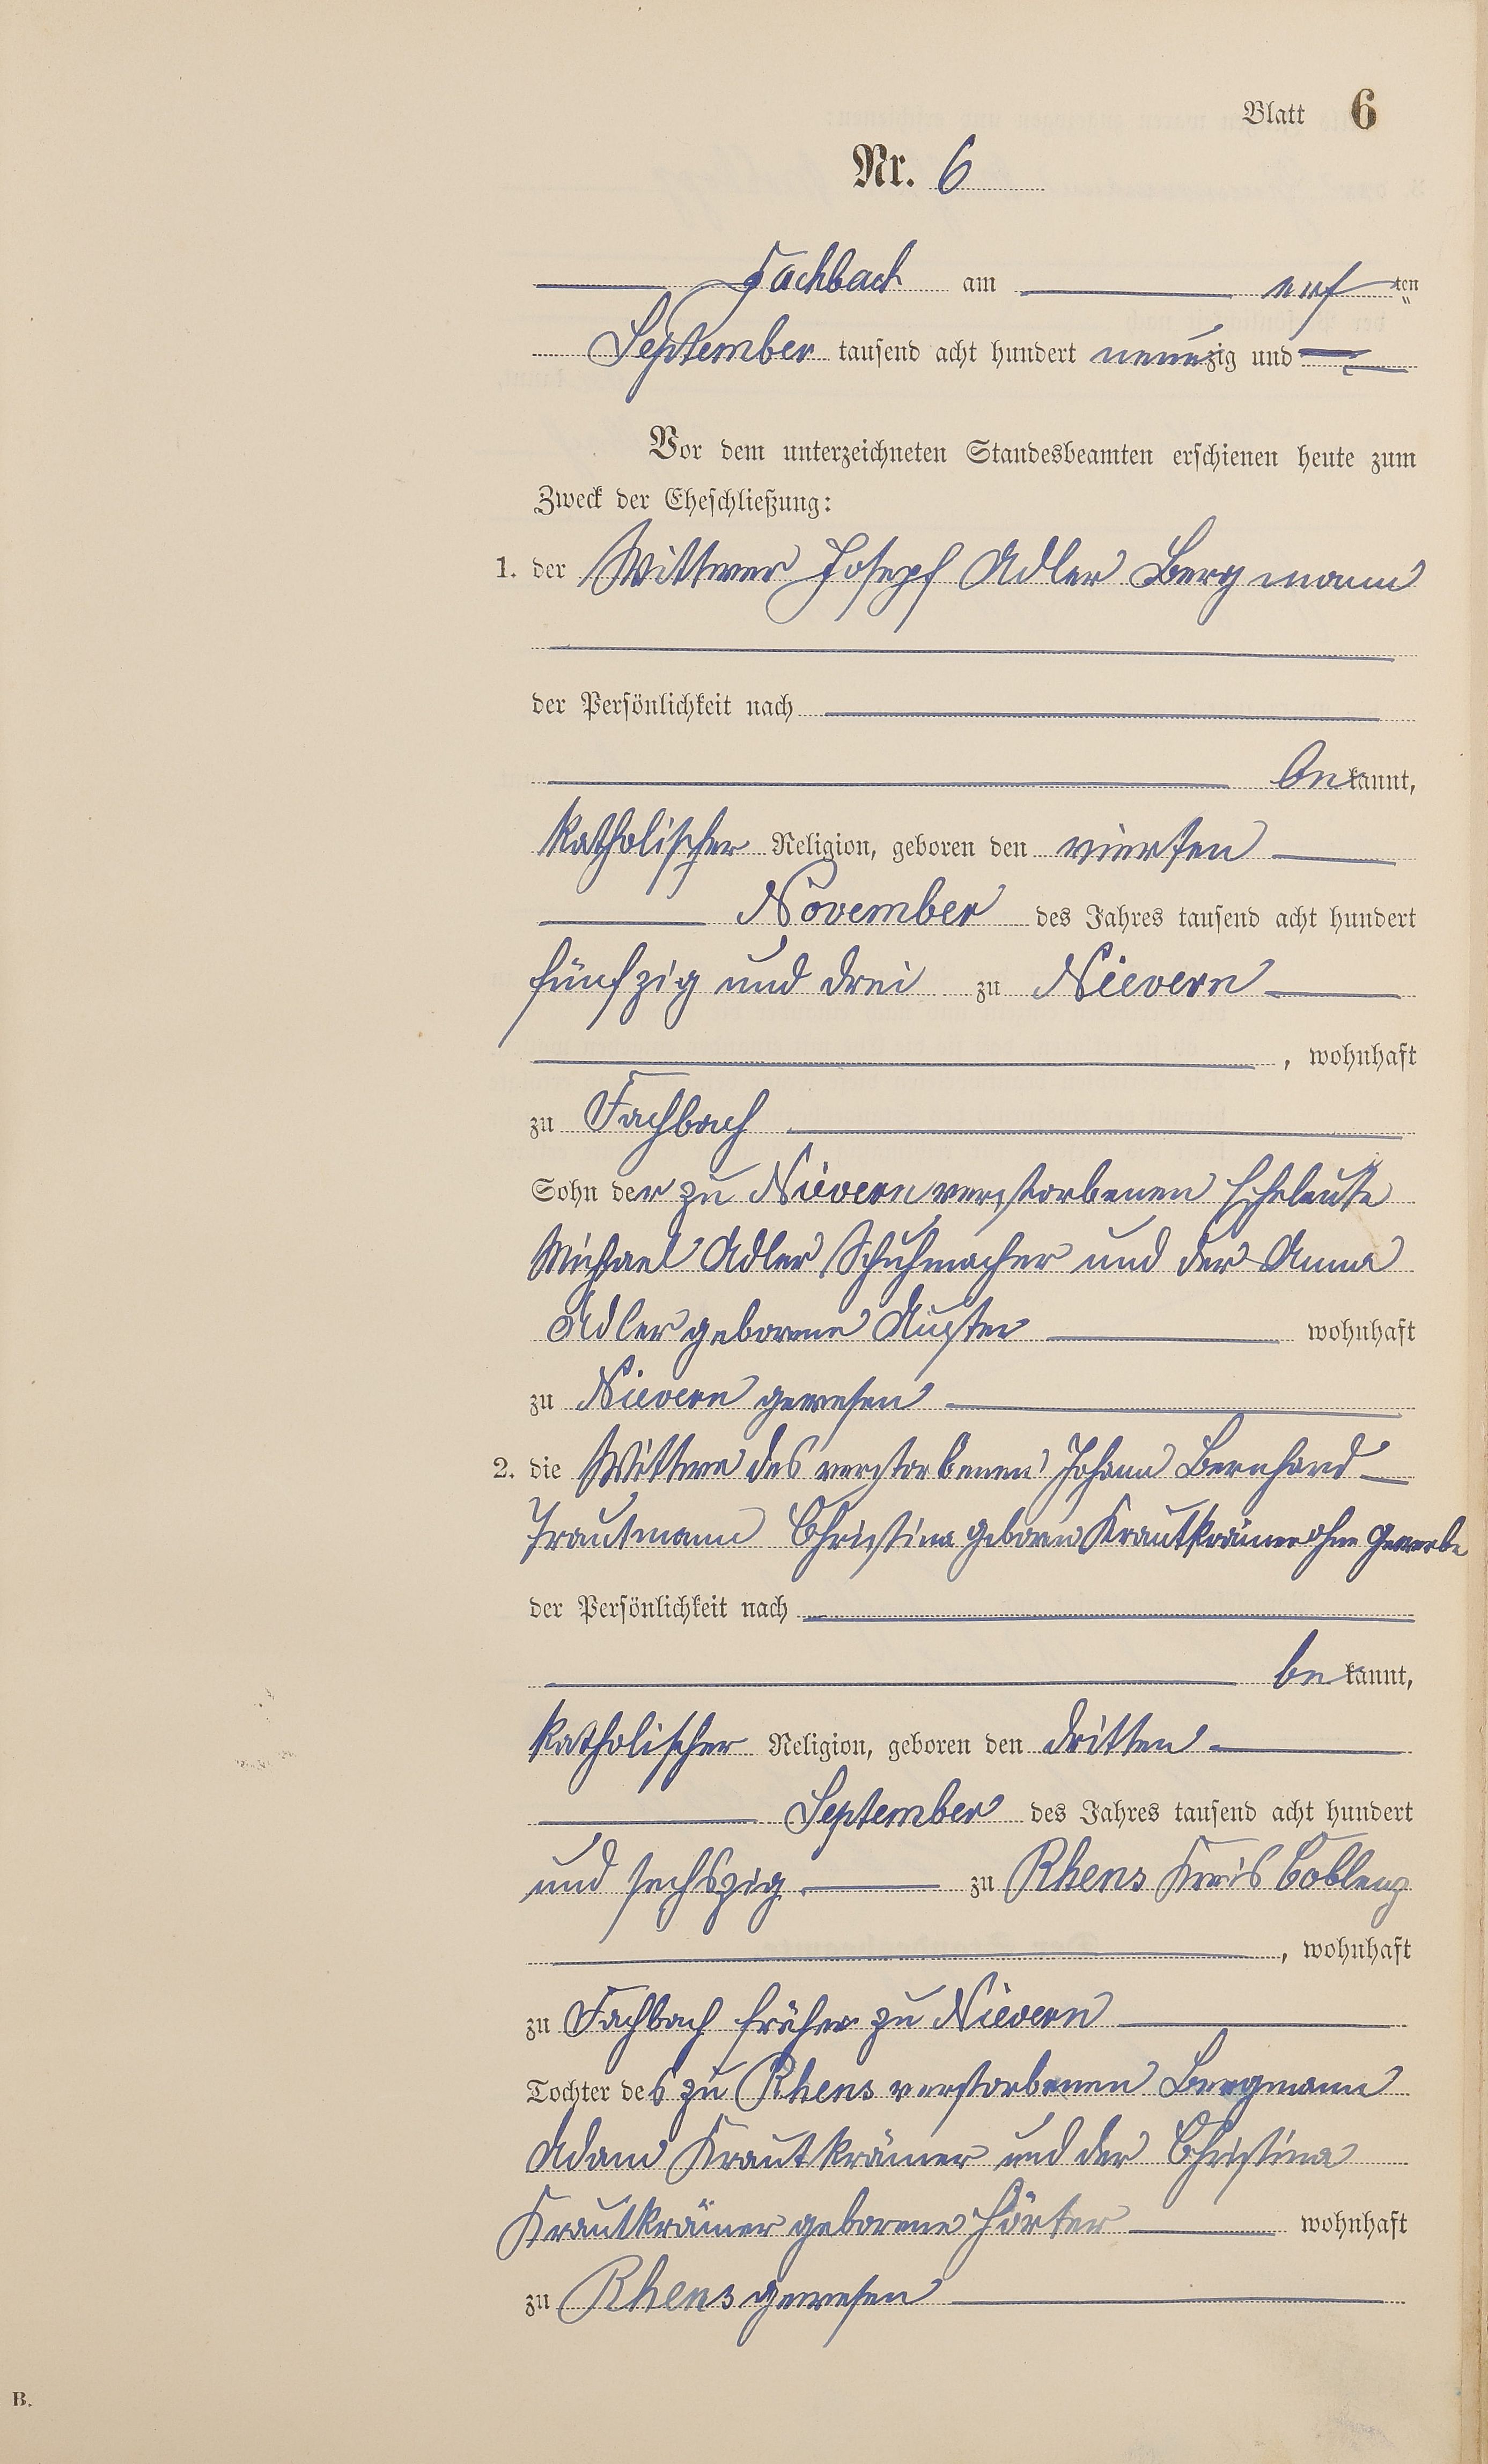 Blatt 6
Nr. 6
Fachbach am ten
September tausend acht hundert neunzig und
Vor dem unterzeichneten Standesbeamten erschienen heute zum
Zweck der Eheschließung:
1. der Wittwer Josepf Adler Bergmann
der Persönlichkeit nach
bekannt,
katholischer Religion, geboren den vierten
November des Jahres tausend acht hundert
fünfzig und drei zu Nievern
, wohnhaft
zu Fachbach
Sohn der zu Nievern verstorbenen Eheleute
Michael Adler Schuhmacher und der Anna
Adler geborene wohnhaft
zu Nievern gewesen
2. die Wittwe des verstorbenen Johann Bernhard
Trautmann Christina geborne Krautkrämer ohne Gewerbe
der Persönlichkeit nach
bekannt,
katholischer Religion, geboren den dritten
September des Jahres tausend acht hundert
und sechszig zu Rhens Kreis Coblenz
, wohnhaft
zu Fachbach früher zu Nievern
Tochter des zu Rhens verstorbenen Bergmann
Adam Krautkrämer und der Christina
Krautkrämer geborene Hörter wohnhaft
zu Rhens gewesen
B.